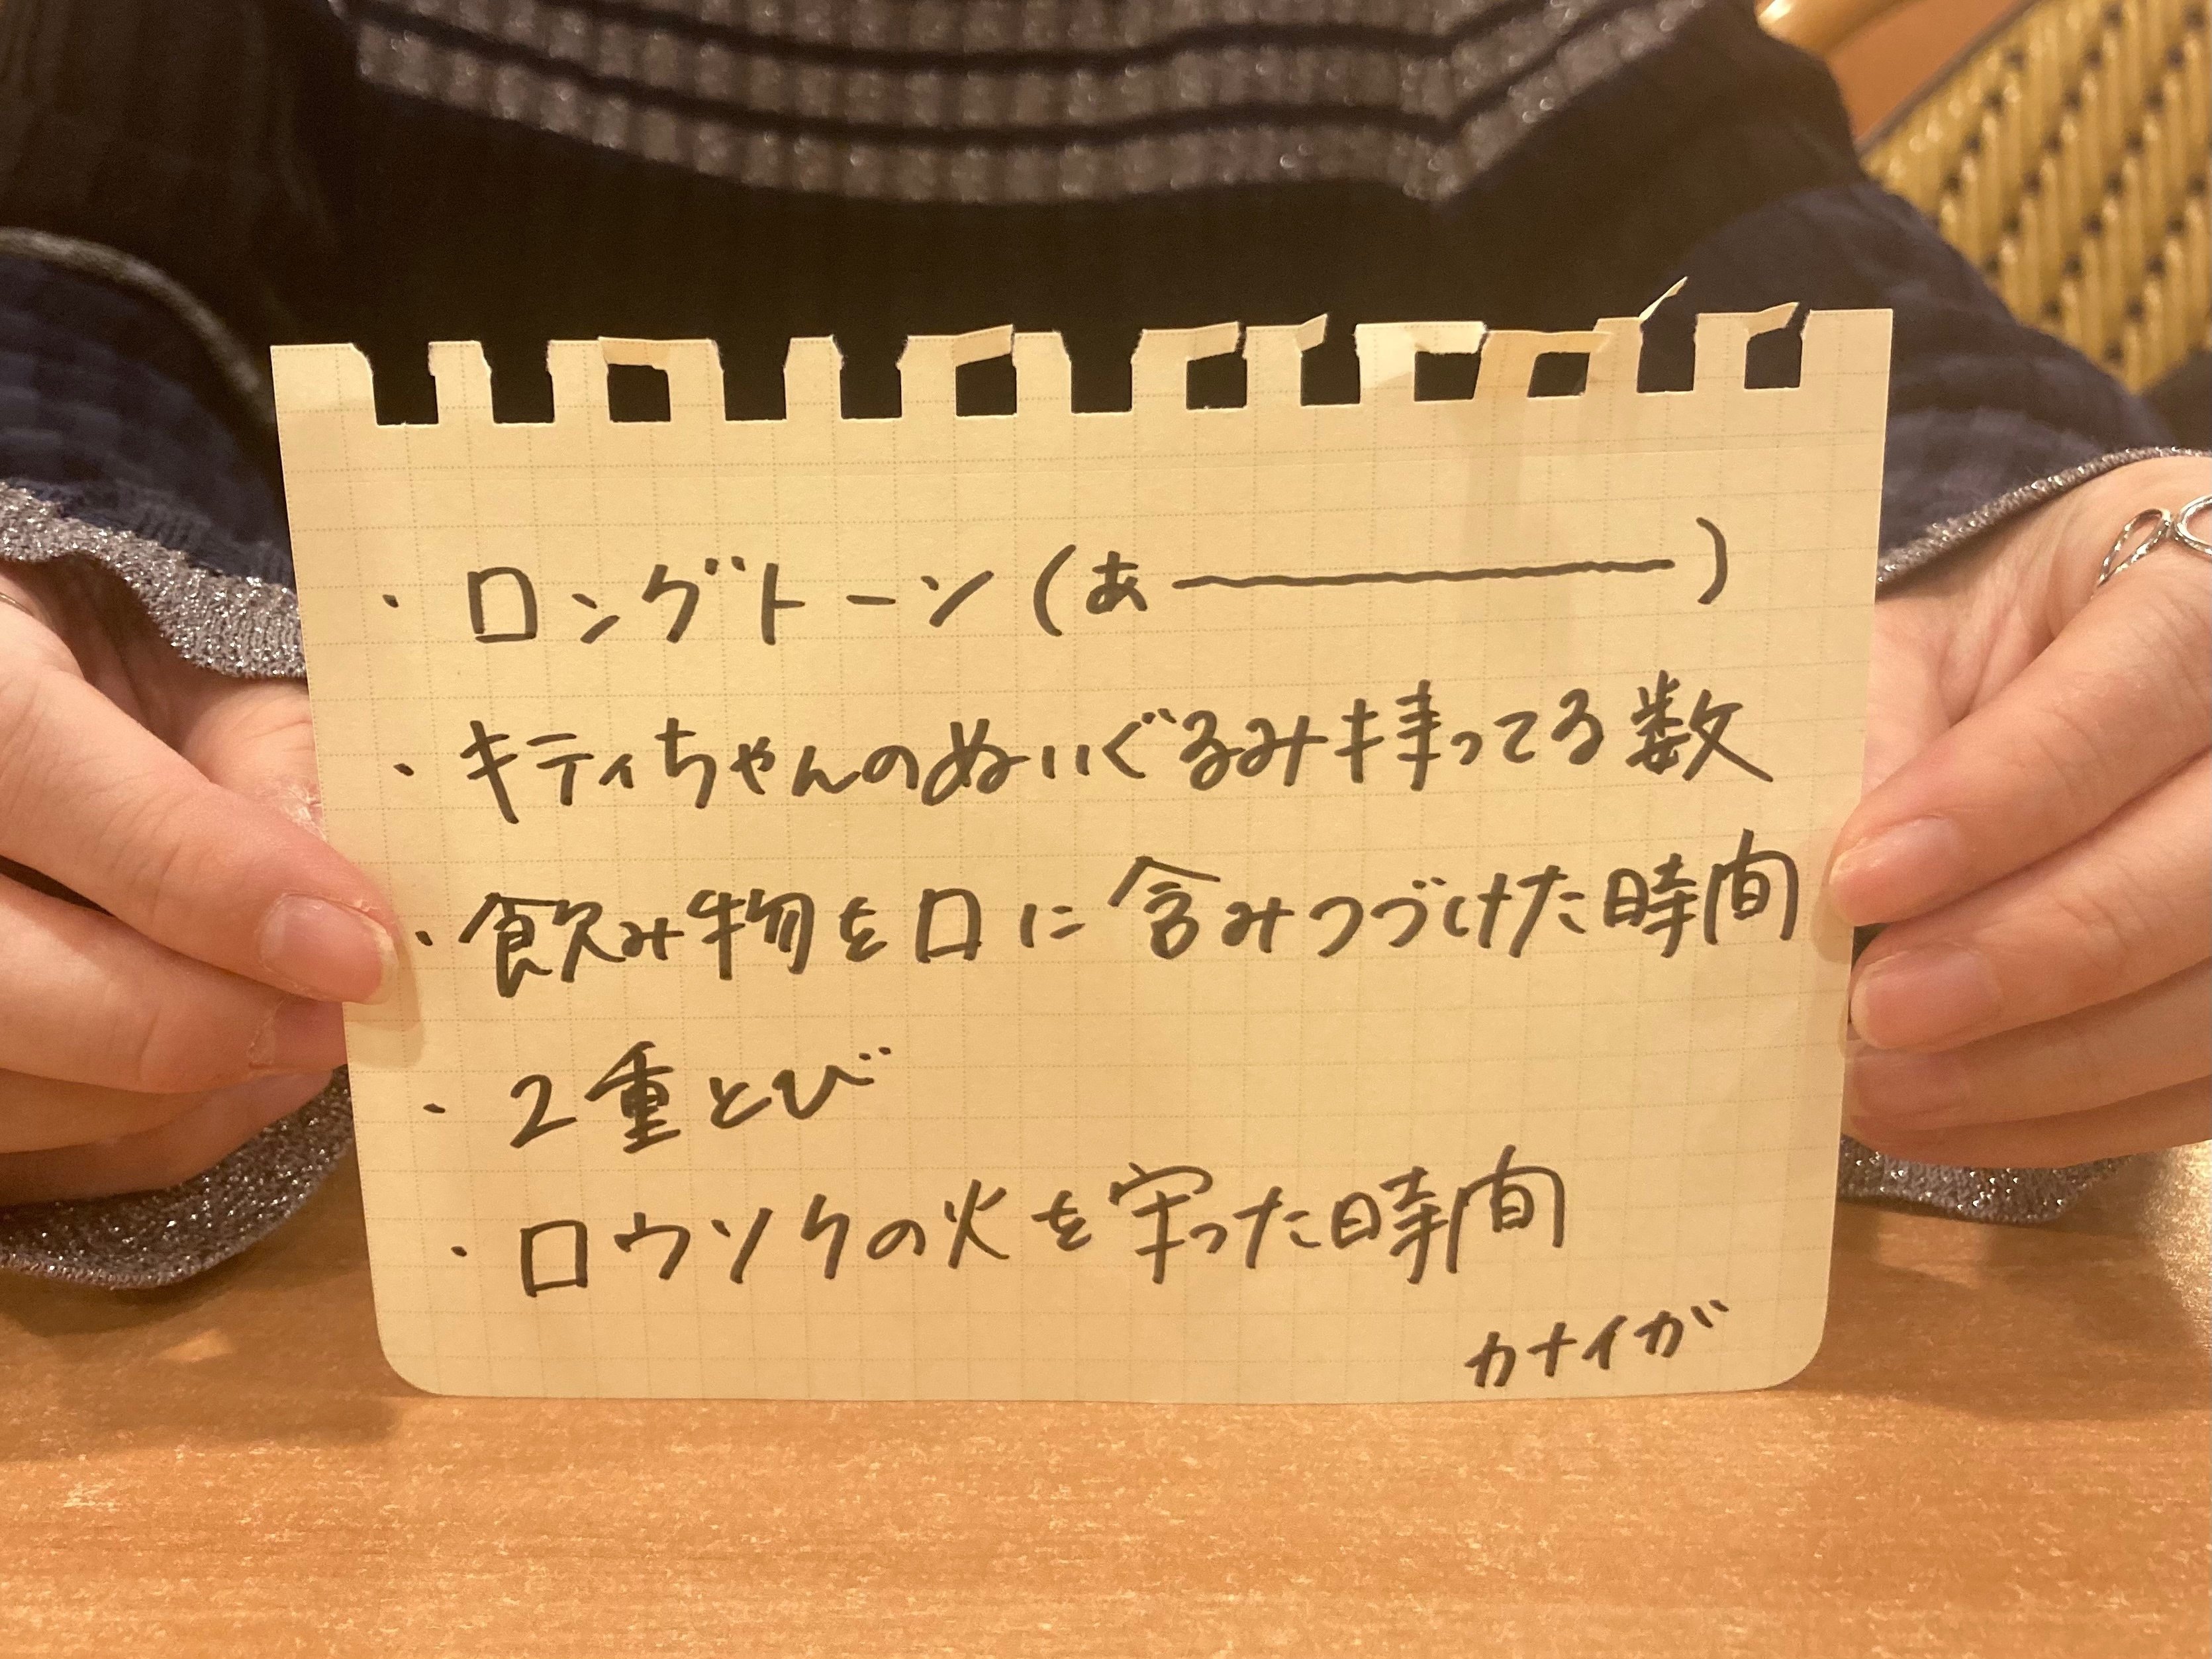 ・ロングトーン(あ――――――)
・キティちゃんのぬいぐるみ持ってる数
・飲み物を口に含みつづけた時間
・2重とび
・ロウソクの火を守った時間
カナイガ